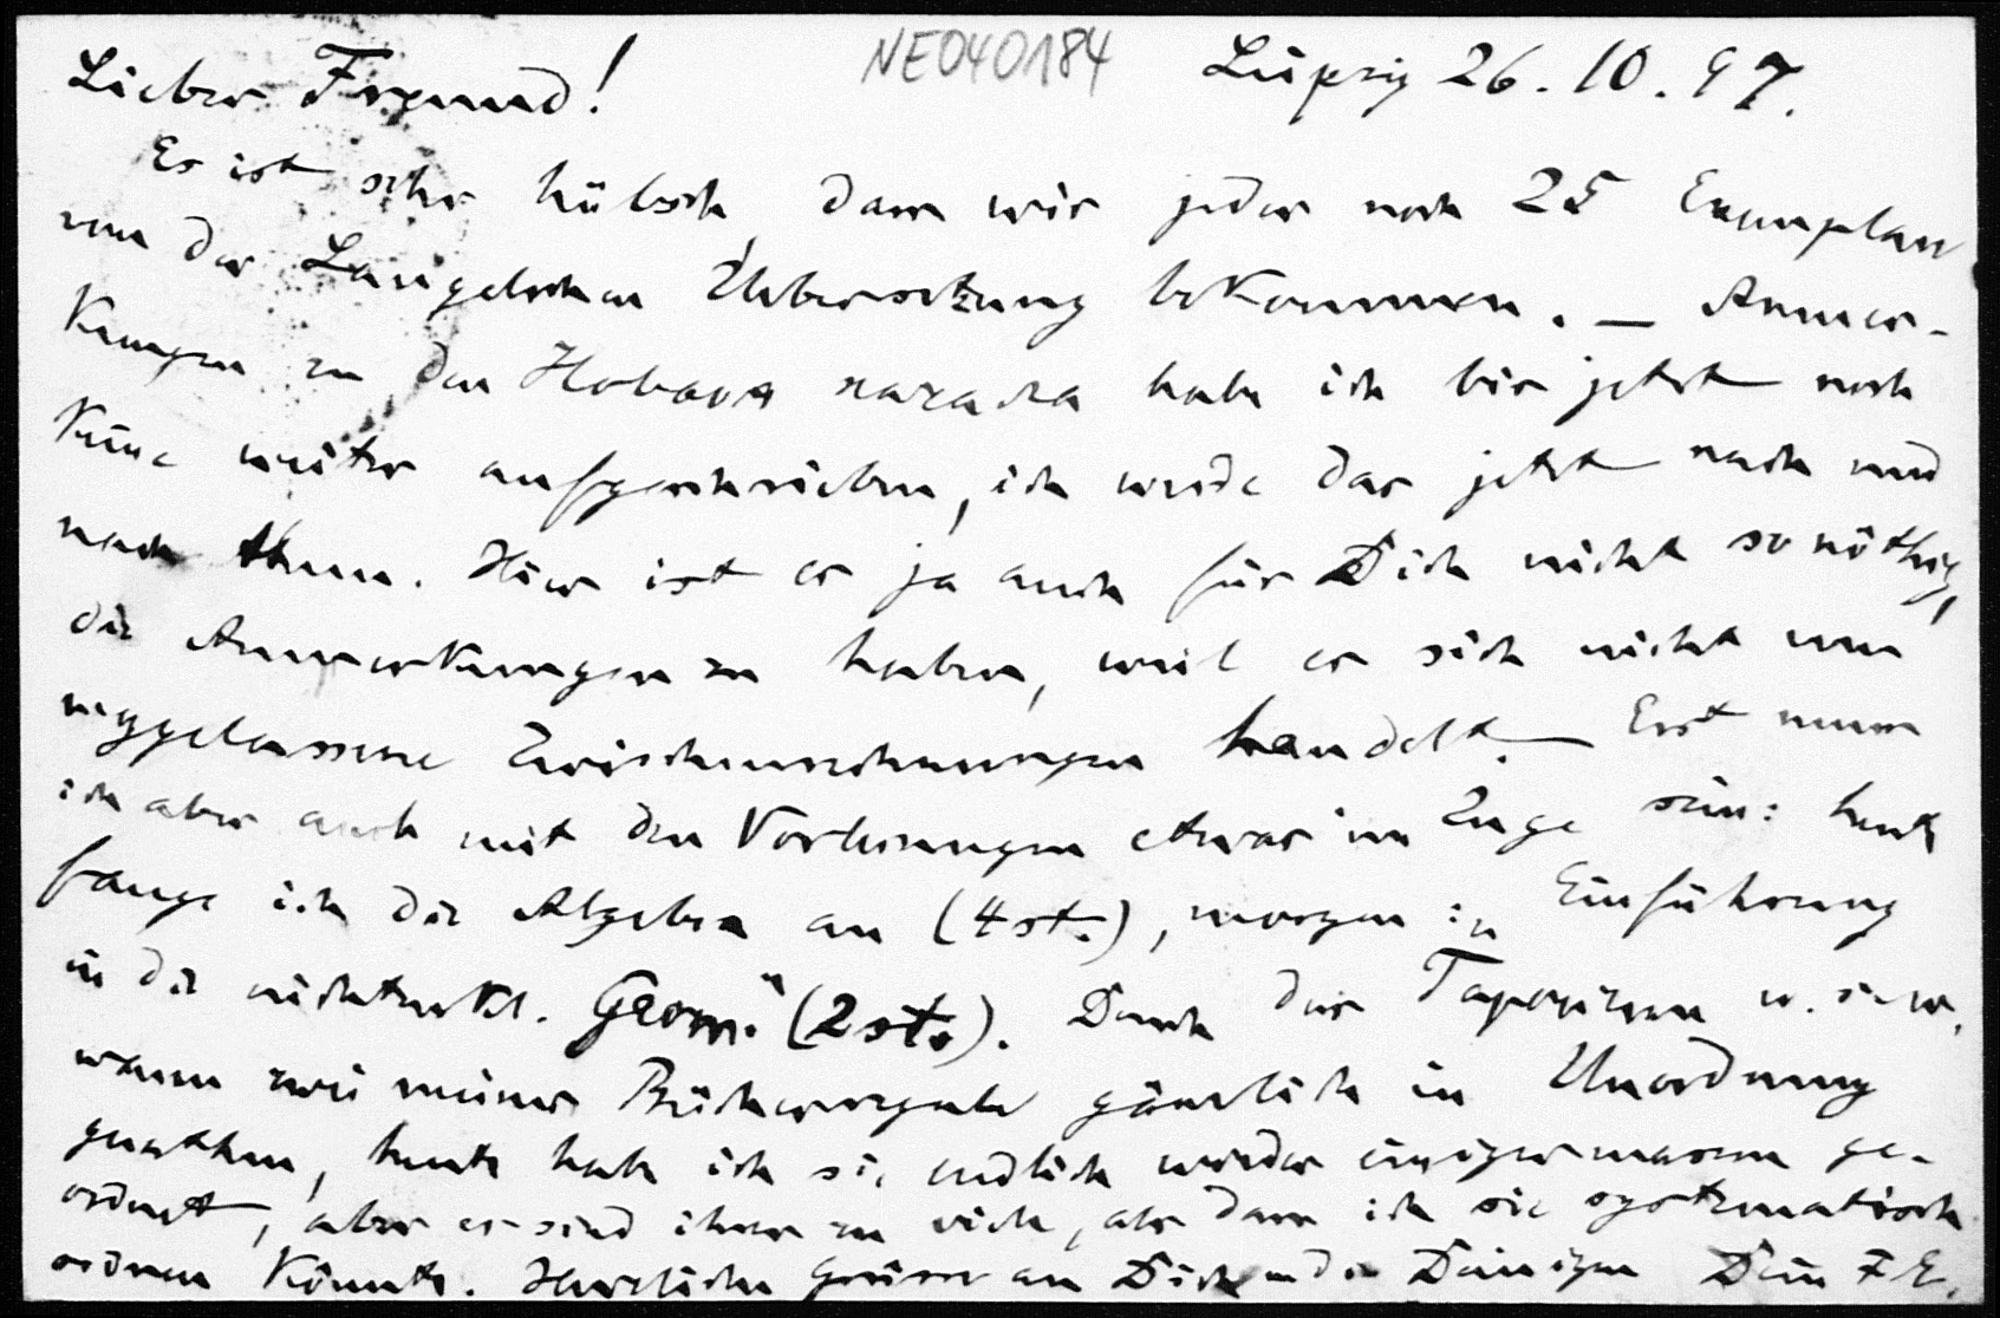 NE040184
Lieber Freund! Leipzig 26. 10. 97.
Es ist sehr hübsch, dass wir jeder noch 25 Exemplare
von der Laugelschen Übersetzung bekommen. — Anmer-
kungen zu den Новыя начала habe ich bis jetzt noch
keine weiter aufgeschrieben, ich werde das jetzt nach und
nach thun. Hier ist es ja auch für Dich nicht so nöthig,
die Anmerkungen zu haben, weil es sich nicht um
weggelassene Zwischenrechnungen handelt. — Erst muss
ich aber auch mit den Vorlesungen etwas im Zuge sein: heute
fange ich die Algebra an (4st.), morgen „Einführung
in die nichteukl. Geom.“ (2st.). Durch das Tapeziren u. s. w.
waren zwei meiner Bücherregale gänzlich in Unordnung
gerathen, heute habe ich sie endlich wieder einigermassen ge-
ordnet, aber es sind ihrer zu viele, als dass ich sie systematisch
ordnen könnte. Herzliche Grüsse an Dich und die Deinigen Dein F E.